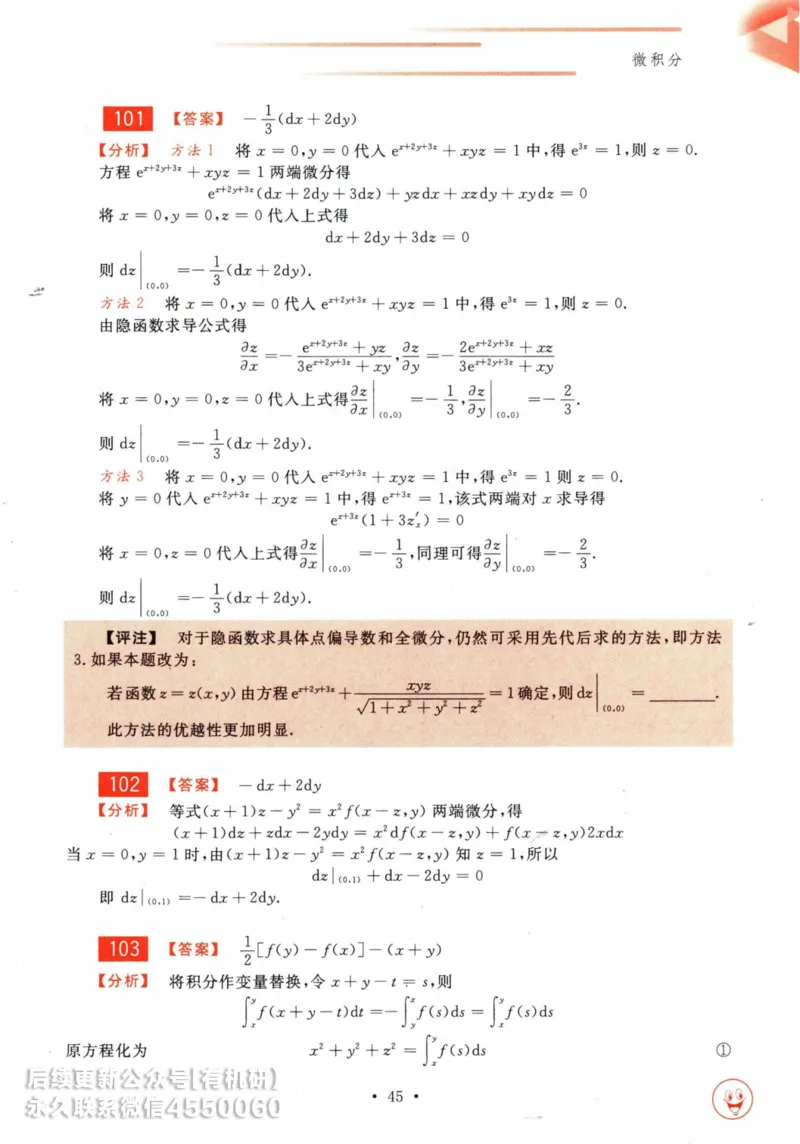 微积分
101 【答案】 $-\frac{1}{3}(dx+2dy)$
【分析】 方法1 将 $x=0,y=0$ 代入 $e^{x+2y+3z}+xyz=1$ 中,得 $e^{3z}=1$,则 $z=0$.
方程 $e^{x+2y+3z}+xyz=1$ 两端微分得
$e^{x+2y+3z}(dx+2dy+3dz)+yzdx+xzdy+xydz=0$
将 $x=0,y=0,z=0$ 代入上式得
$dx+2dy+3dz=0$
则 $dz|_{(0,0)}=-\frac{1}{3}(dx+2dy)$.
方法2 将 $x=0,y=0$ 代入 $e^{x+2y+3z}+xyz=1$ 中,得 $e^{3z}=1$,则 $z=0$.
由隐函数求导公式得
$\frac{\partial z}{\partial x}=-\frac{e^{x+2y+3z}+yz}{3e^{x+2y+3z}+xy},\frac{\partial z}{\partial y}=-\frac{2e^{x+2y+3z}+xz}{3e^{x+2y+3z}+xy}$
将 $x=0,y=0,z=0$ 代入上式得 $\frac{\partial z}{\partial x}|_{(0,0)}=-\frac{1}{3},\frac{\partial z}{\partial y}|_{(0,0)}=-\frac{2}{3}$.
则 $dz|_{(0,0)}=-\frac{1}{3}(dx+2dy)$.
方法3 将 $x=0,y=0$ 代入 $e^{x+2y+3z}+xyz=1$ 中,得 $e^{3z}=1$ 则 $z=0$.
将 $y=0$ 代入 $e^{x+2y+3z}+xyz=1$ 中,得 $e^{x+3z}=1$,该式两端对 $x$ 求导得
$e^{x+3z}(1+3z'_x)=0$
将 $x=0,z=0$ 代入上式得 $\frac{\partial z}{\partial x}|_{(0,0)}=-\frac{1}{3}$,同理可得 $\frac{\partial z}{\partial y}|_{(0,0)}=-\frac{2}{3}$.
则 $dz|_{(0,0)}=-\frac{1}{3}(dx+2dy)$.
【评注】 对于隐函数求具体点偏导数和全微分,仍然可采用先代后求的方法,即方法
3.如果本题改为:
若函数 $z=z(x,y)$ 由方程 $e^{x+2y+3z}+\frac{xyz}{\sqrt{1+x^2+y^2+z^2}}=1$ 确定,则 $dz|_{(0,0)}=$ ______.
此方法的优越性更加明显.
102 【答案】 $-dx+2dy$
【分析】 等式 $(x+1)z-y^2=x^2f(x-z,y)$ 两端微分,得
$(x+1)dz+zdx-2ydy=x^2df(x-z,y)+f(x-z,y)2xdx$
当 $x=0,y=1$ 时,由 $(x+1)z-y^2=x^2f(x-z,y)$ 知 $z=1$,所以
$dz|_{(0,1)}+dx-2dy=0$
即 $dz|_{(0,1)}=-dx+2dy$.
103 【答案】 $\frac{1}{2}[f(y)-f(x)]-(x+y)$
【分析】 将积分作变量替换,令 $x+y-t=s$,则
$\int_x^y f(x+y-t)dt=-\int_y^x f(s)ds=\int_x^y f(s)ds$
原方程化为 $x^2+y^2+z^2=\int_x^y f(s)ds$ ①
后续更新公众号[有机研]
永久联系微信4550060
• 45 •